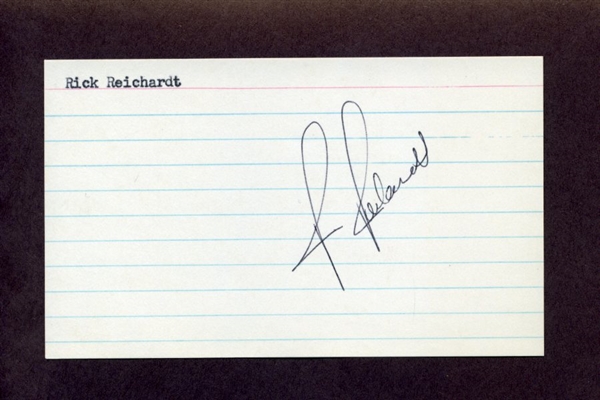 Rick Reichardt
R Reichardt